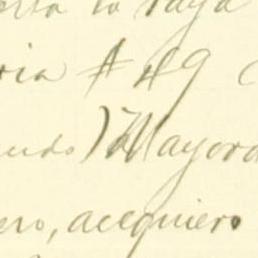 la raya
ria # 49
undo) Mayord
ero, acequiero